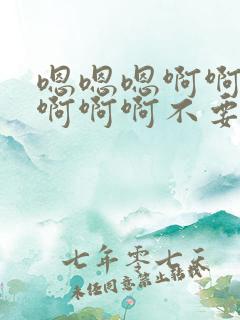 嗯嗯嗯啊啊
啊啊啊不要
七年零七天
未经同意禁止转载